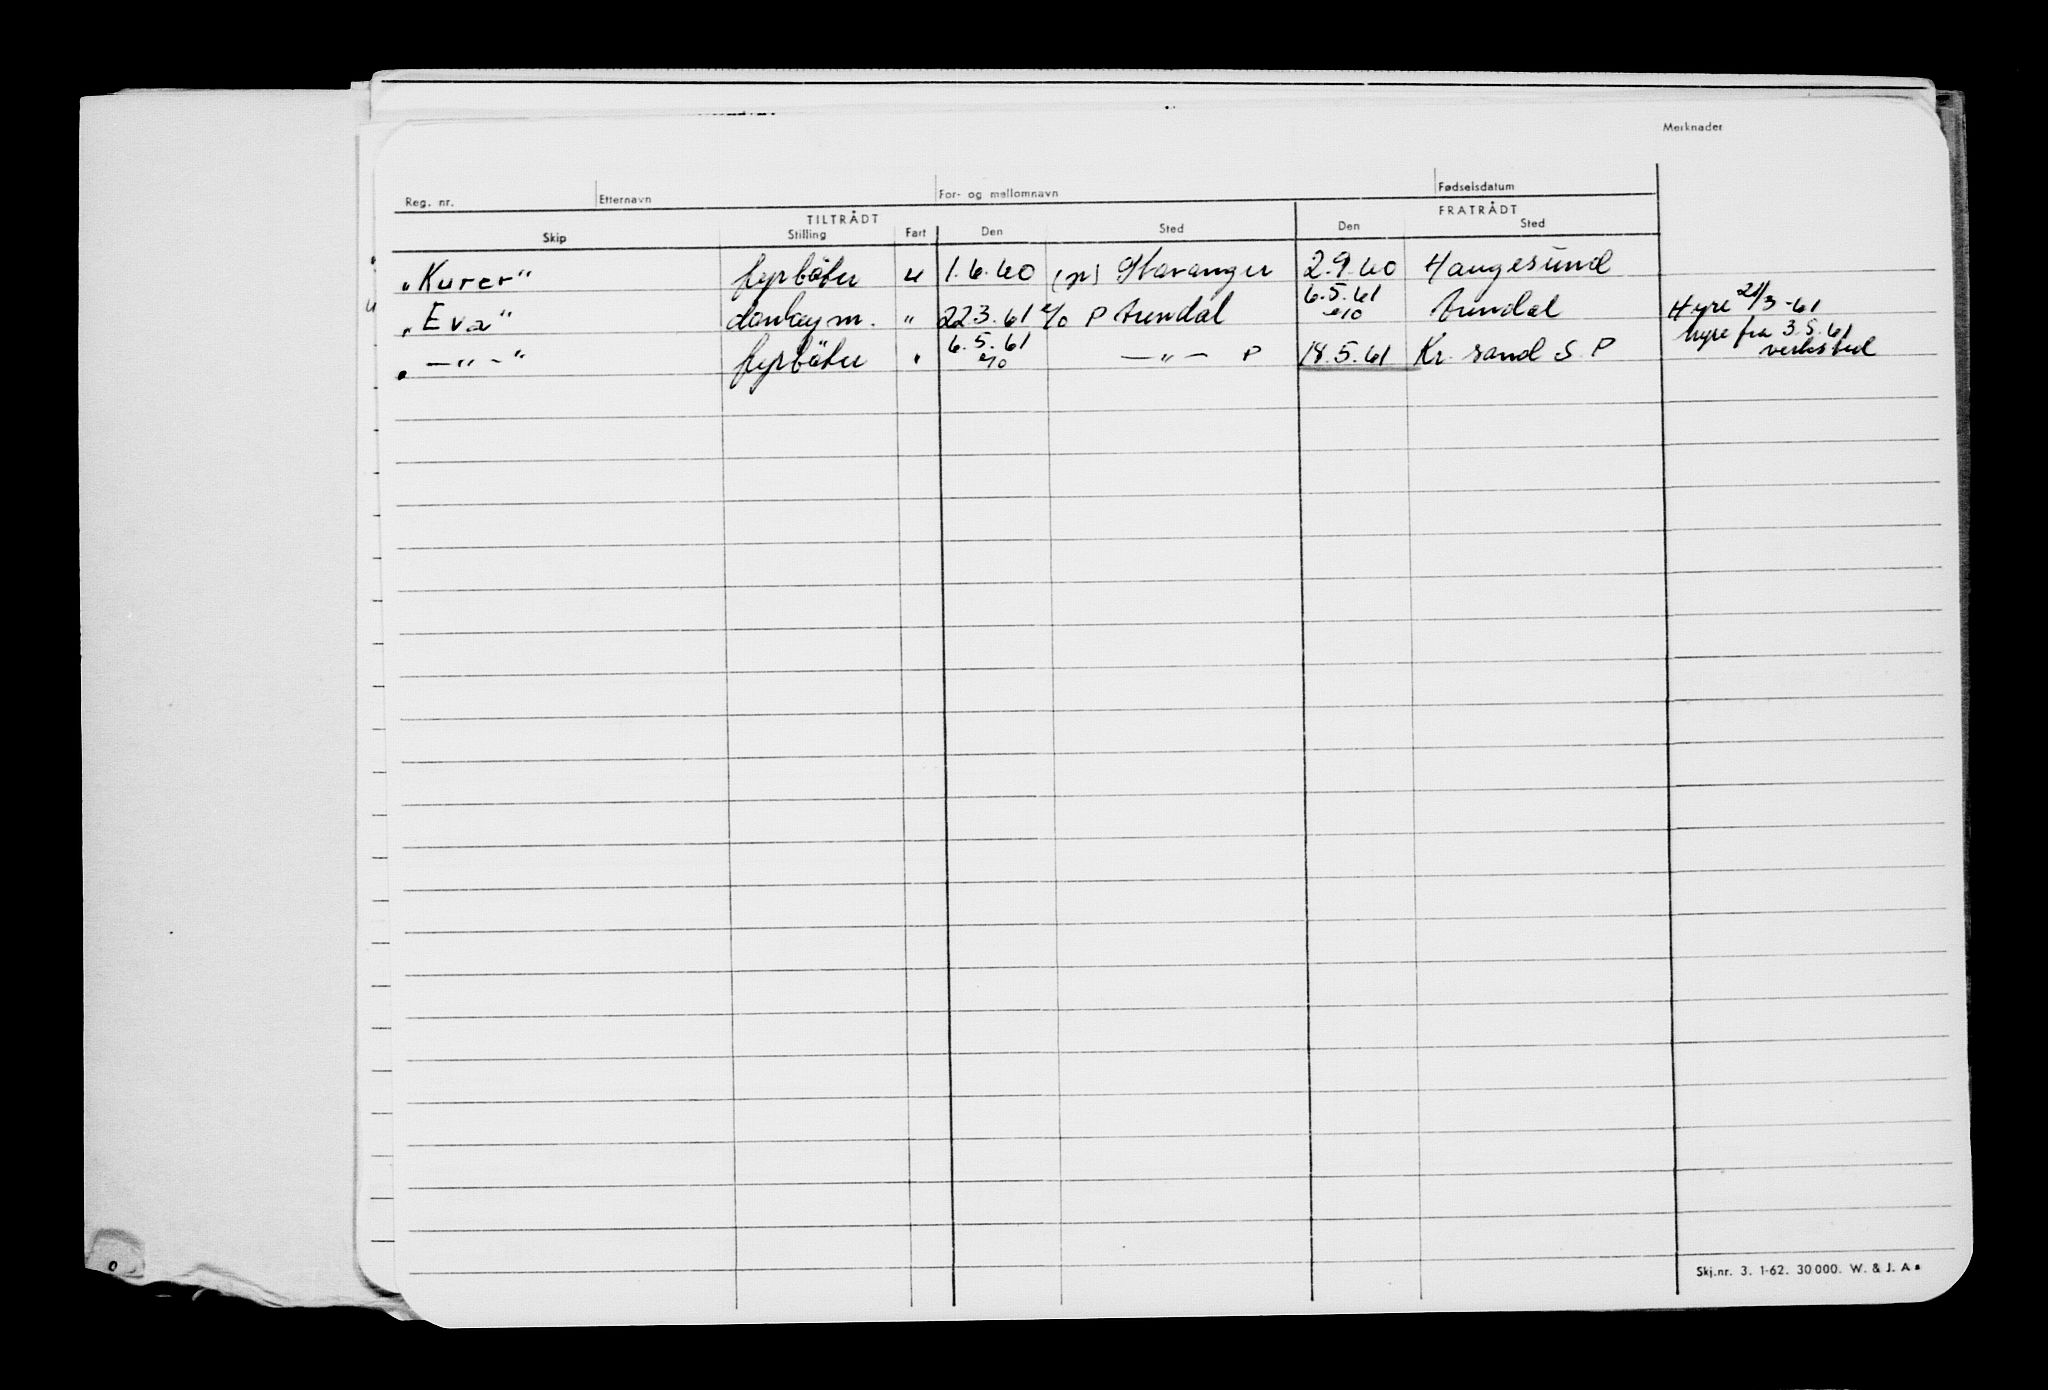 Merknader
Reg. nr. Etternavn For- og mellomnavn Fødselsdatum
TILTRÅDT FRATRÅDT
Skip Stilling Fart Den Sted Den Sted
„Kurer" fyrbøter u 1.6.60 (p) Stavanger 2.9.60 Haugesund
„Eva" donkeym. " 22.3.61 e/o P Arendal 6.5.61 e/o Arendal Hyre 21/3-61
„ -"- " fyrbøter " 6.5.61 e/o -"- P 18.5.61 Kr. sand S. P hyre fra 3.5.61
verksted
Skj.nr. 3. 1-62. 30000. W. & J. A s